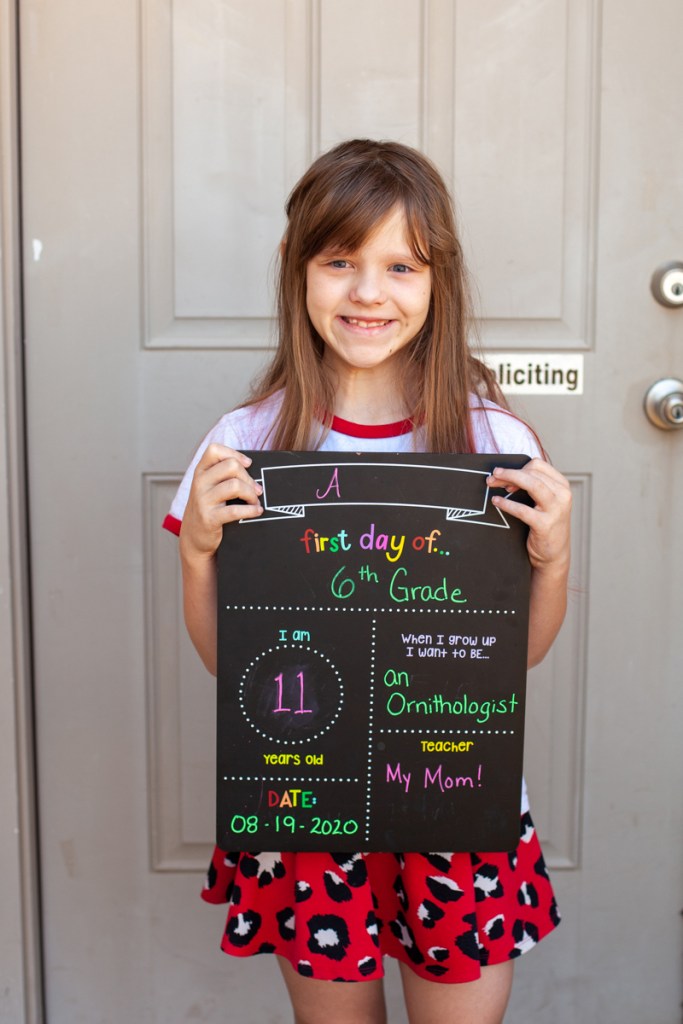 oliciting
A
first day of...
6th Grade
I am
11
years old
DATE:
08-19-2020
When I grow up
I want to BE...
an
Ornithologist
Teacher
My Mom!